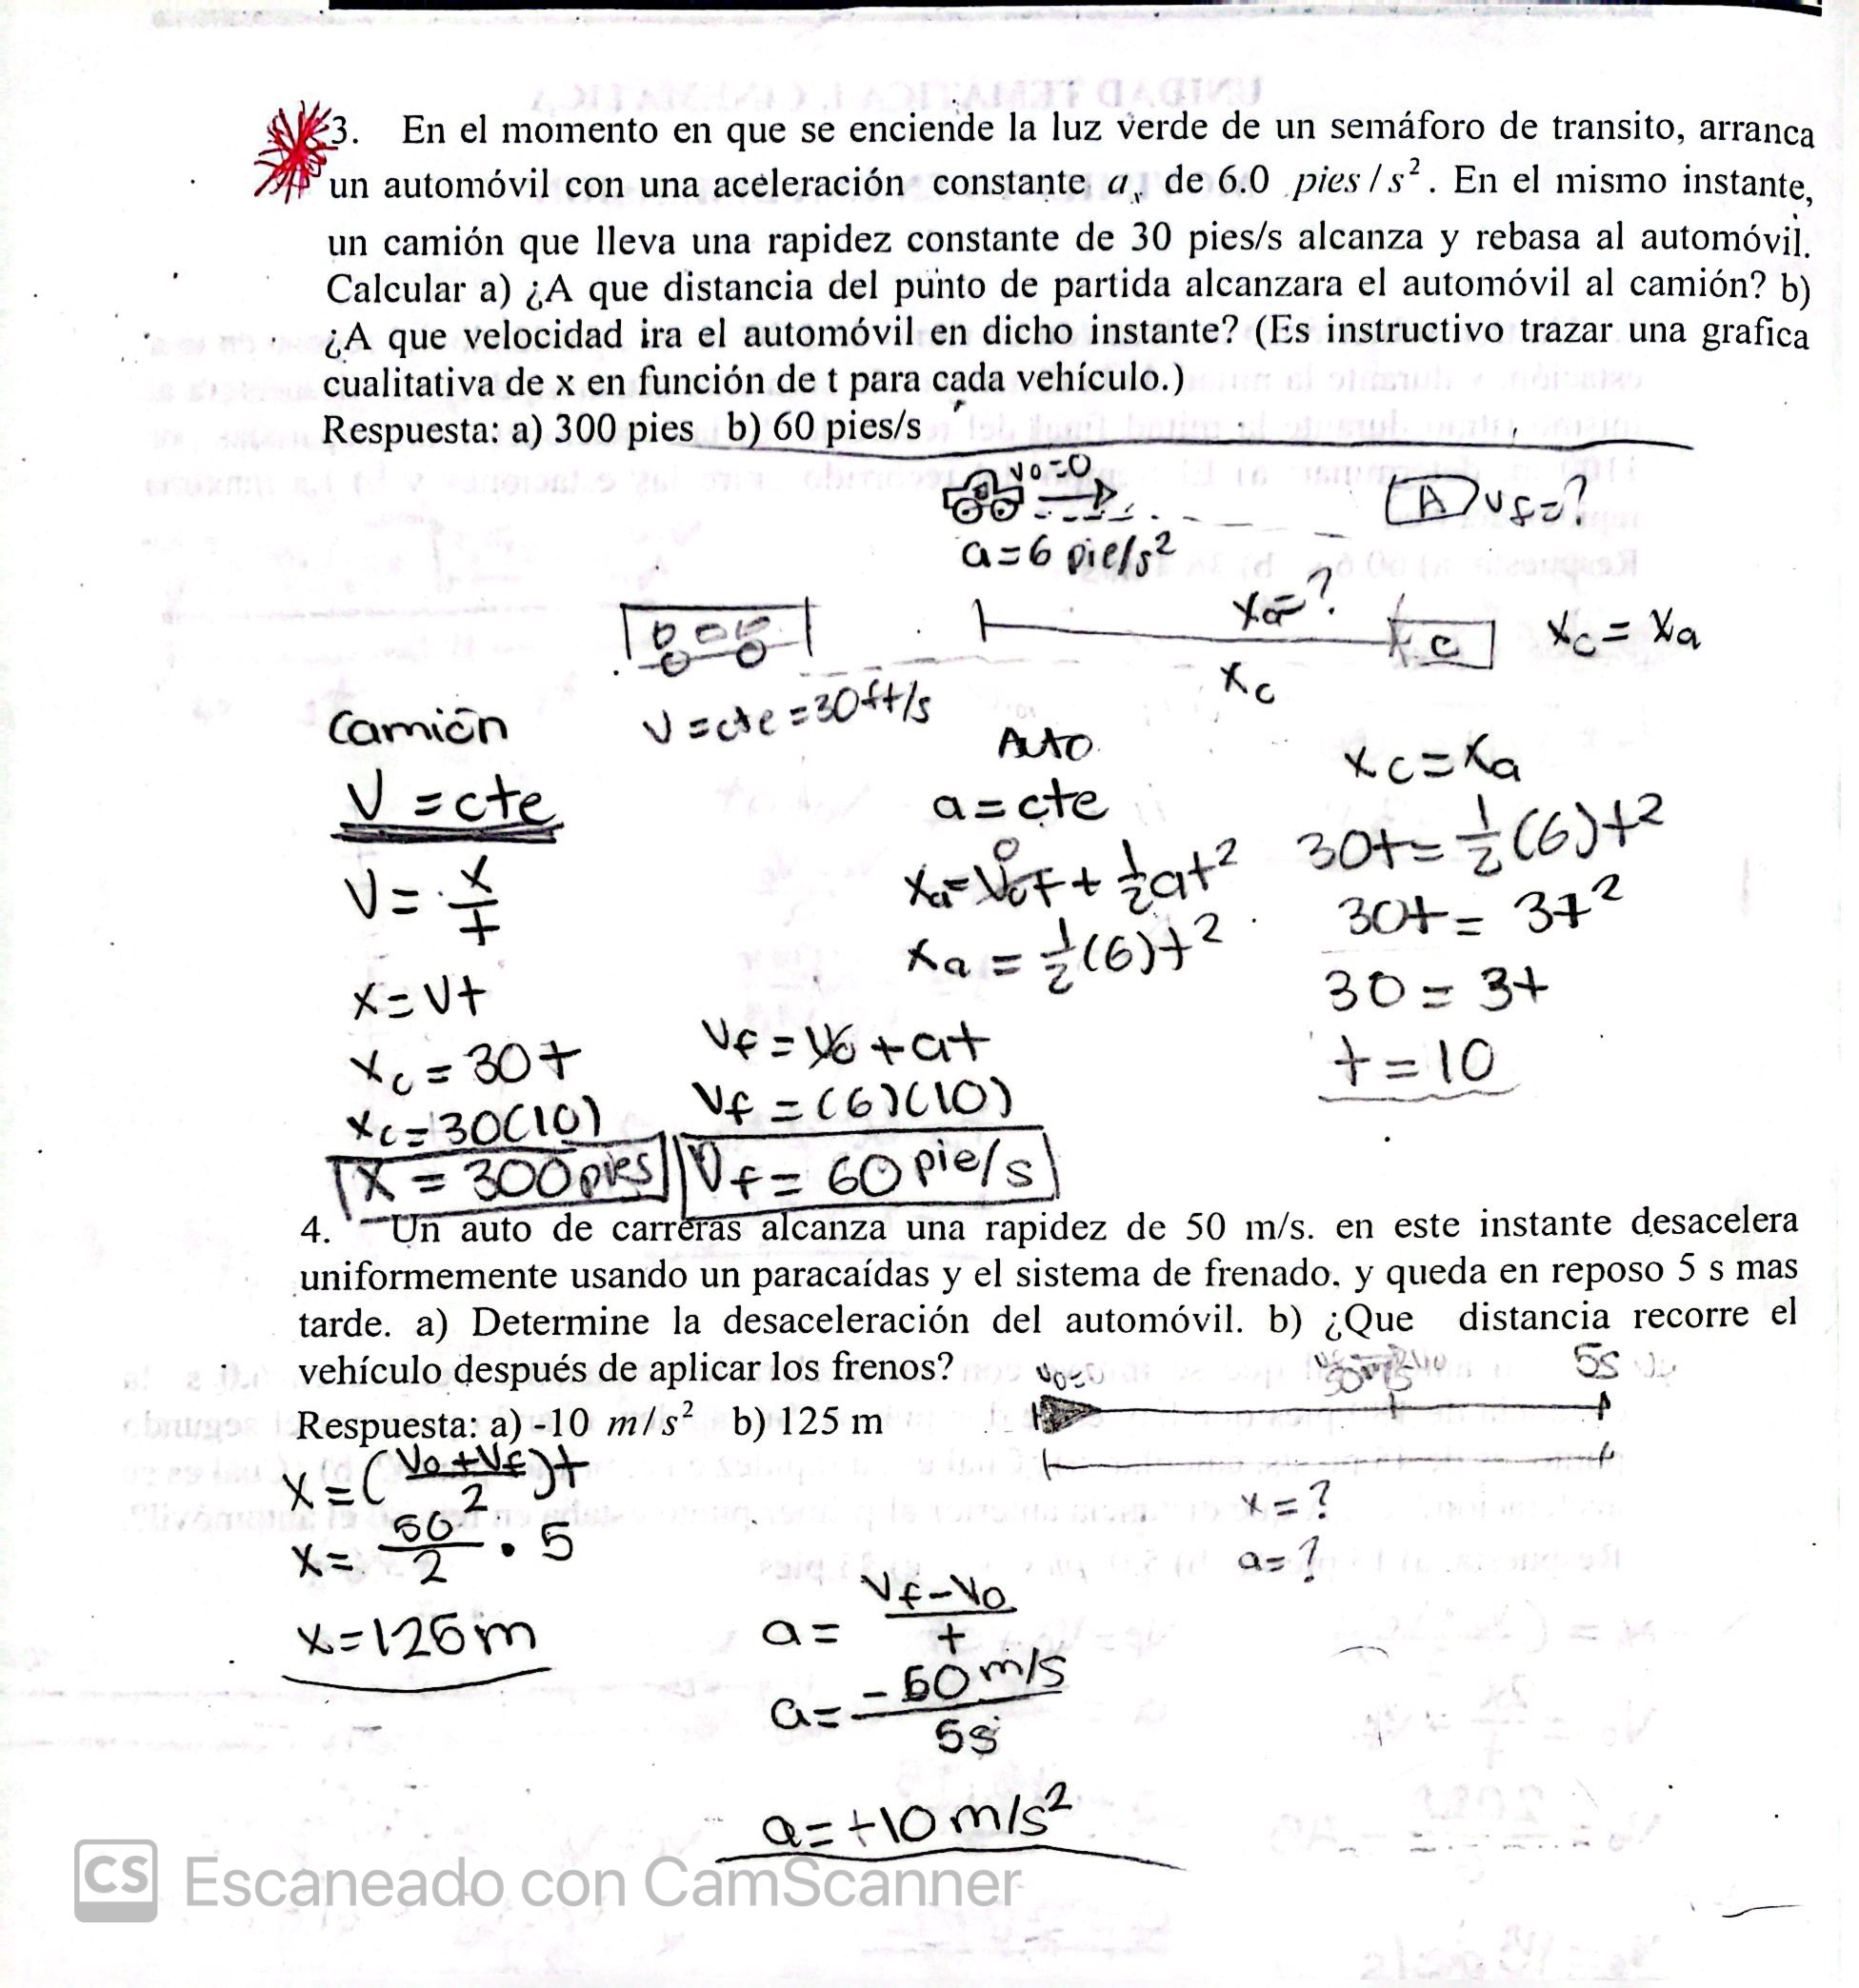 3. En el momento en que se enciende la luz verde de un semáforo de transito, arranca
un automóvil con una aceleración constante a, de 6.0 pies / s². En el mismo instante,
un camión que lleva una rapidez constante de 30 pies/s alcanza y rebasa al automóvil.
Calcular a) ¿A que distancia del punto de partida alcanzara el automóvil al camión? b)
¿A que velocidad ira el automóvil en dicho instante? (Es instructivo trazar una grafica
cualitativa de x en función de t para cada vehículo.)
Respuesta: a) 300 pies b) 60 pies/s
v0=0
A vf=?
a=6 pie/s²
xa=?
C xc = xa
xc
v=cte=30ft/s
Camión
V=cte
V=x/t
x=vt
xc=30t
xc=30(10)
x=300pies
Auto
a=cte
xa=v0t+1/2at²
0
xa=1/2(6)t²
Vf=V0+at
Vf=(6)(10)
Vf=60pie/s
xc=xa
30t=1/2(6)t²
30t=3t²
30=3t
t=10
4. Un auto de carreras alcanza una rapidez de 50 m/s. en este instante desacelera
uniformemente usando un paracaídas y el sistema de frenado, y queda en reposo 5 s mas
tarde. a) Determine la desaceleración del automóvil. b) ¿Que distancia recorre el
vehículo después de aplicar los frenos?
Respuesta: a) -10 m/s² b) 125 m
v0=0
5s
x=?
a=?
x=(V0+Vf/2)t
x=50/2·5
x=125m
a=Vf-V0/t
a=-50m/s/5s
a=+10m/s²
CS Escaneado con CamScanner